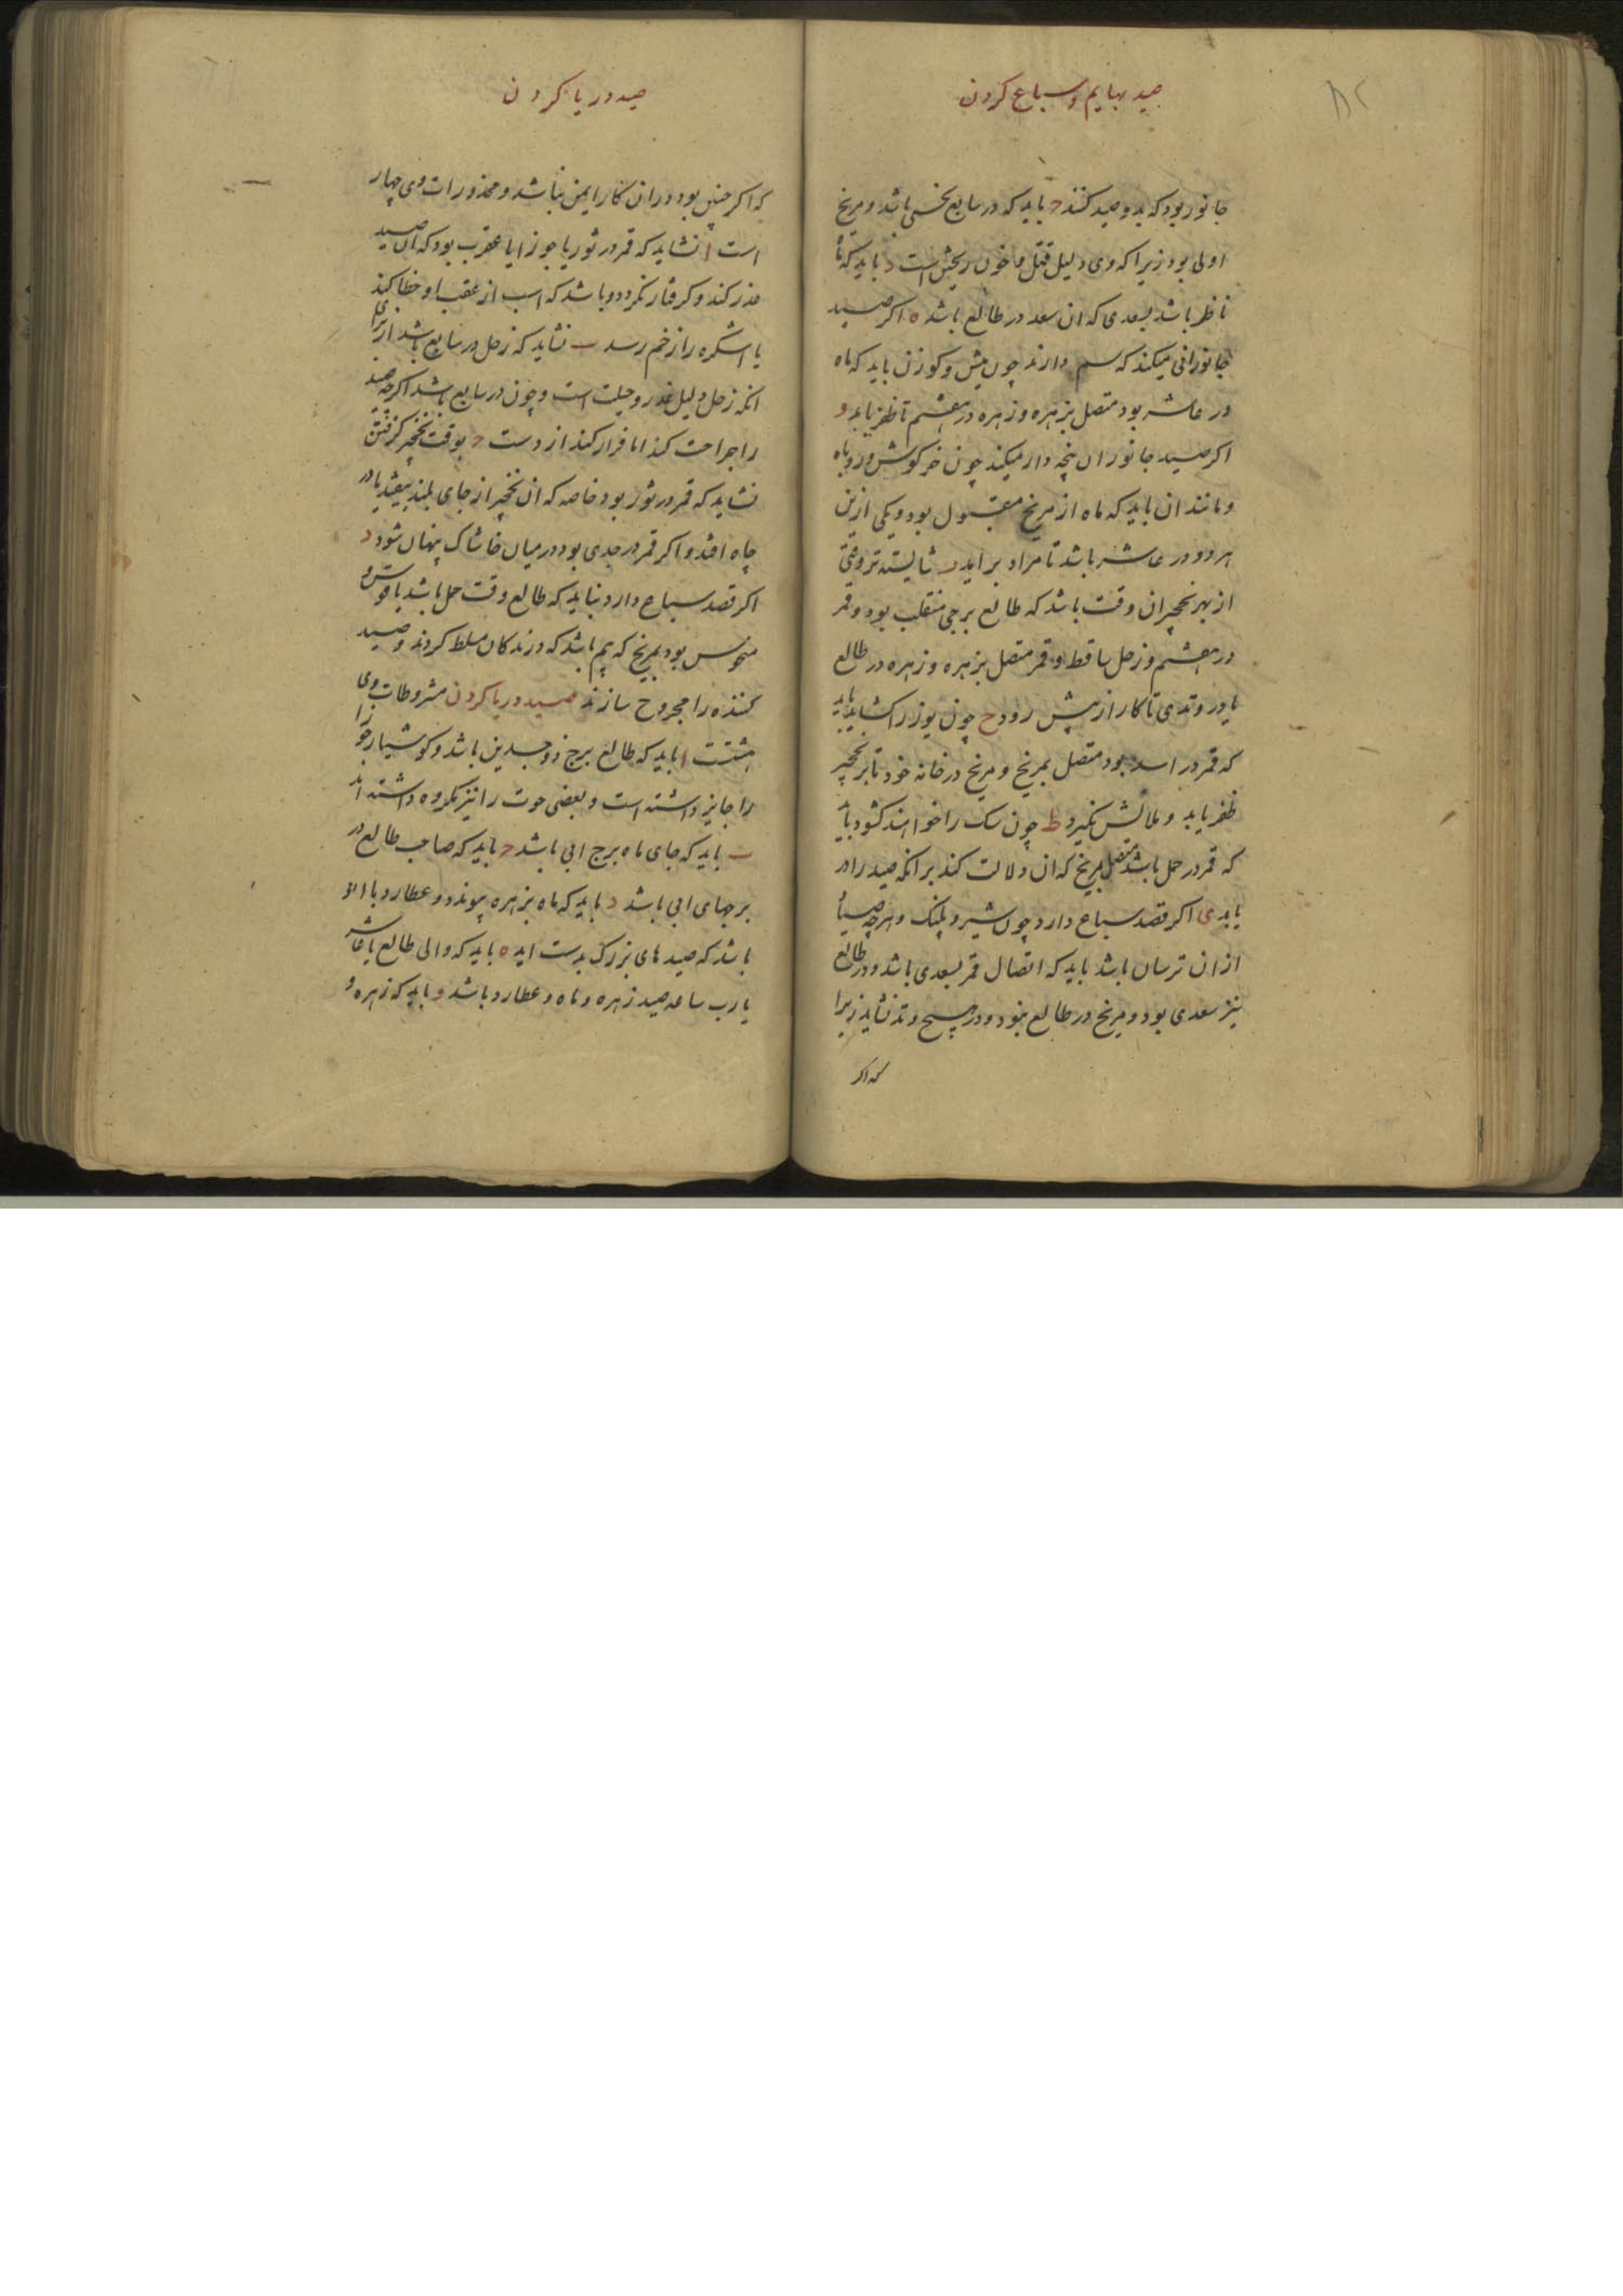 صید بهایم و سباع کردن
۸۲
جانور بود که بدو صید کنند ج باید که در سابع نحسی باشد و مریخ
اولی بود زیرا که وی دلیل قتل و خون ریختن است د باید که ماه
ناظر باشد بسعدی که ان سعد در طالع باشد ه اکر صید
جانورانی میکند که سم دارند چون میش و کوزن باید که ماه
در عاشر بود متصل بزهره و زهره در هشتم تا ظفر یابد و
اکر صید جانوران پنجه دار میکند چون خرکوش و روباه
و مانند ان باید که ماه از مریخ مقبول بود و یکی ازین
هر دو در عاشر باشد تا مراد بر اید ر شایسته تر وقتی
از بهر نخجیر ان وقت باشد که طالع برجی منقلب بود و قمر
در هشتم و زحل ساقط و قمر متصل بزهره و زهره در طالع
یا در وتدی تا کار از پیش رود ح چون یوز را کشاید باید
که قمر در اسد بود متصل بمریخ و مریخ در خانه خود تا بر نخجیر
ظفر یابد و ملالش نکیرد ط چون سک را خواهند کشود باید
که قمر در حمل باشد متصل بمریخ که ان دلالت کند بر انکه صید را در
یابد ی اکر قصد سباع دارد چون شیر و پلنک و هرچه صیاد
از ان ترسان باشد باید که اتصال قمر بسعدی باشد و در طالع
نیز سعدی بود و مریخ در طالع نبود و در هیچ وتد نشاید زیرا
که اکر
صید دریا کردن
که اکر چنین بود دران کار ایمن نباشد و محذورات وی چهار
است ا نشاید که قمر در ثور یا جوزا یا عقرب بود که ان صید
حذر کند و کرفتار نکردد و باشد که اسب از عقب او خطا کند
یا اشکره را زخم رسد ب نشاید که زحل در سابع باشد از برای
انکه زحل دلیل غدر و حیلت است و چون در سابع باشد اکرچه صید
را جراحت کند اما فرار کند از دست ج بوقت نخجیر کرفتن
نشاید که قمر در ثور بود خاصه که ان نخجیر از جای بلند بیفتد یا در
چاه افتد و اکر قمر در جدی بود در میان خاشاک پنهان شود د
اکر قصد سباع دارد نباید که طالع وقت حمل باشد یا قوس و
منحوس بود بمریخ که بیم باشد که درندکان مسلط کردند و صید
کننده را مجروح سازند صید دریا کردن مشروطات وی
هشتست ا باید که طالع برج ذوجسدین باشد و کوشیار جوزا
را جایز داشته است و بعضی حوت را نیز مکروه داشته اند
ب باید که جای ماه برج ابی باشد ج باید که صاحب طالع در
برجهای ابی باشد د باید که ماه بزهره پیوندد و عطارد با او
باشد که صیدهای بزرک بدست اید ه باید که والی طالع یا عاشر
یا رب ساعه صید زهره و ماه و عطارد باشد و باید که زهره و